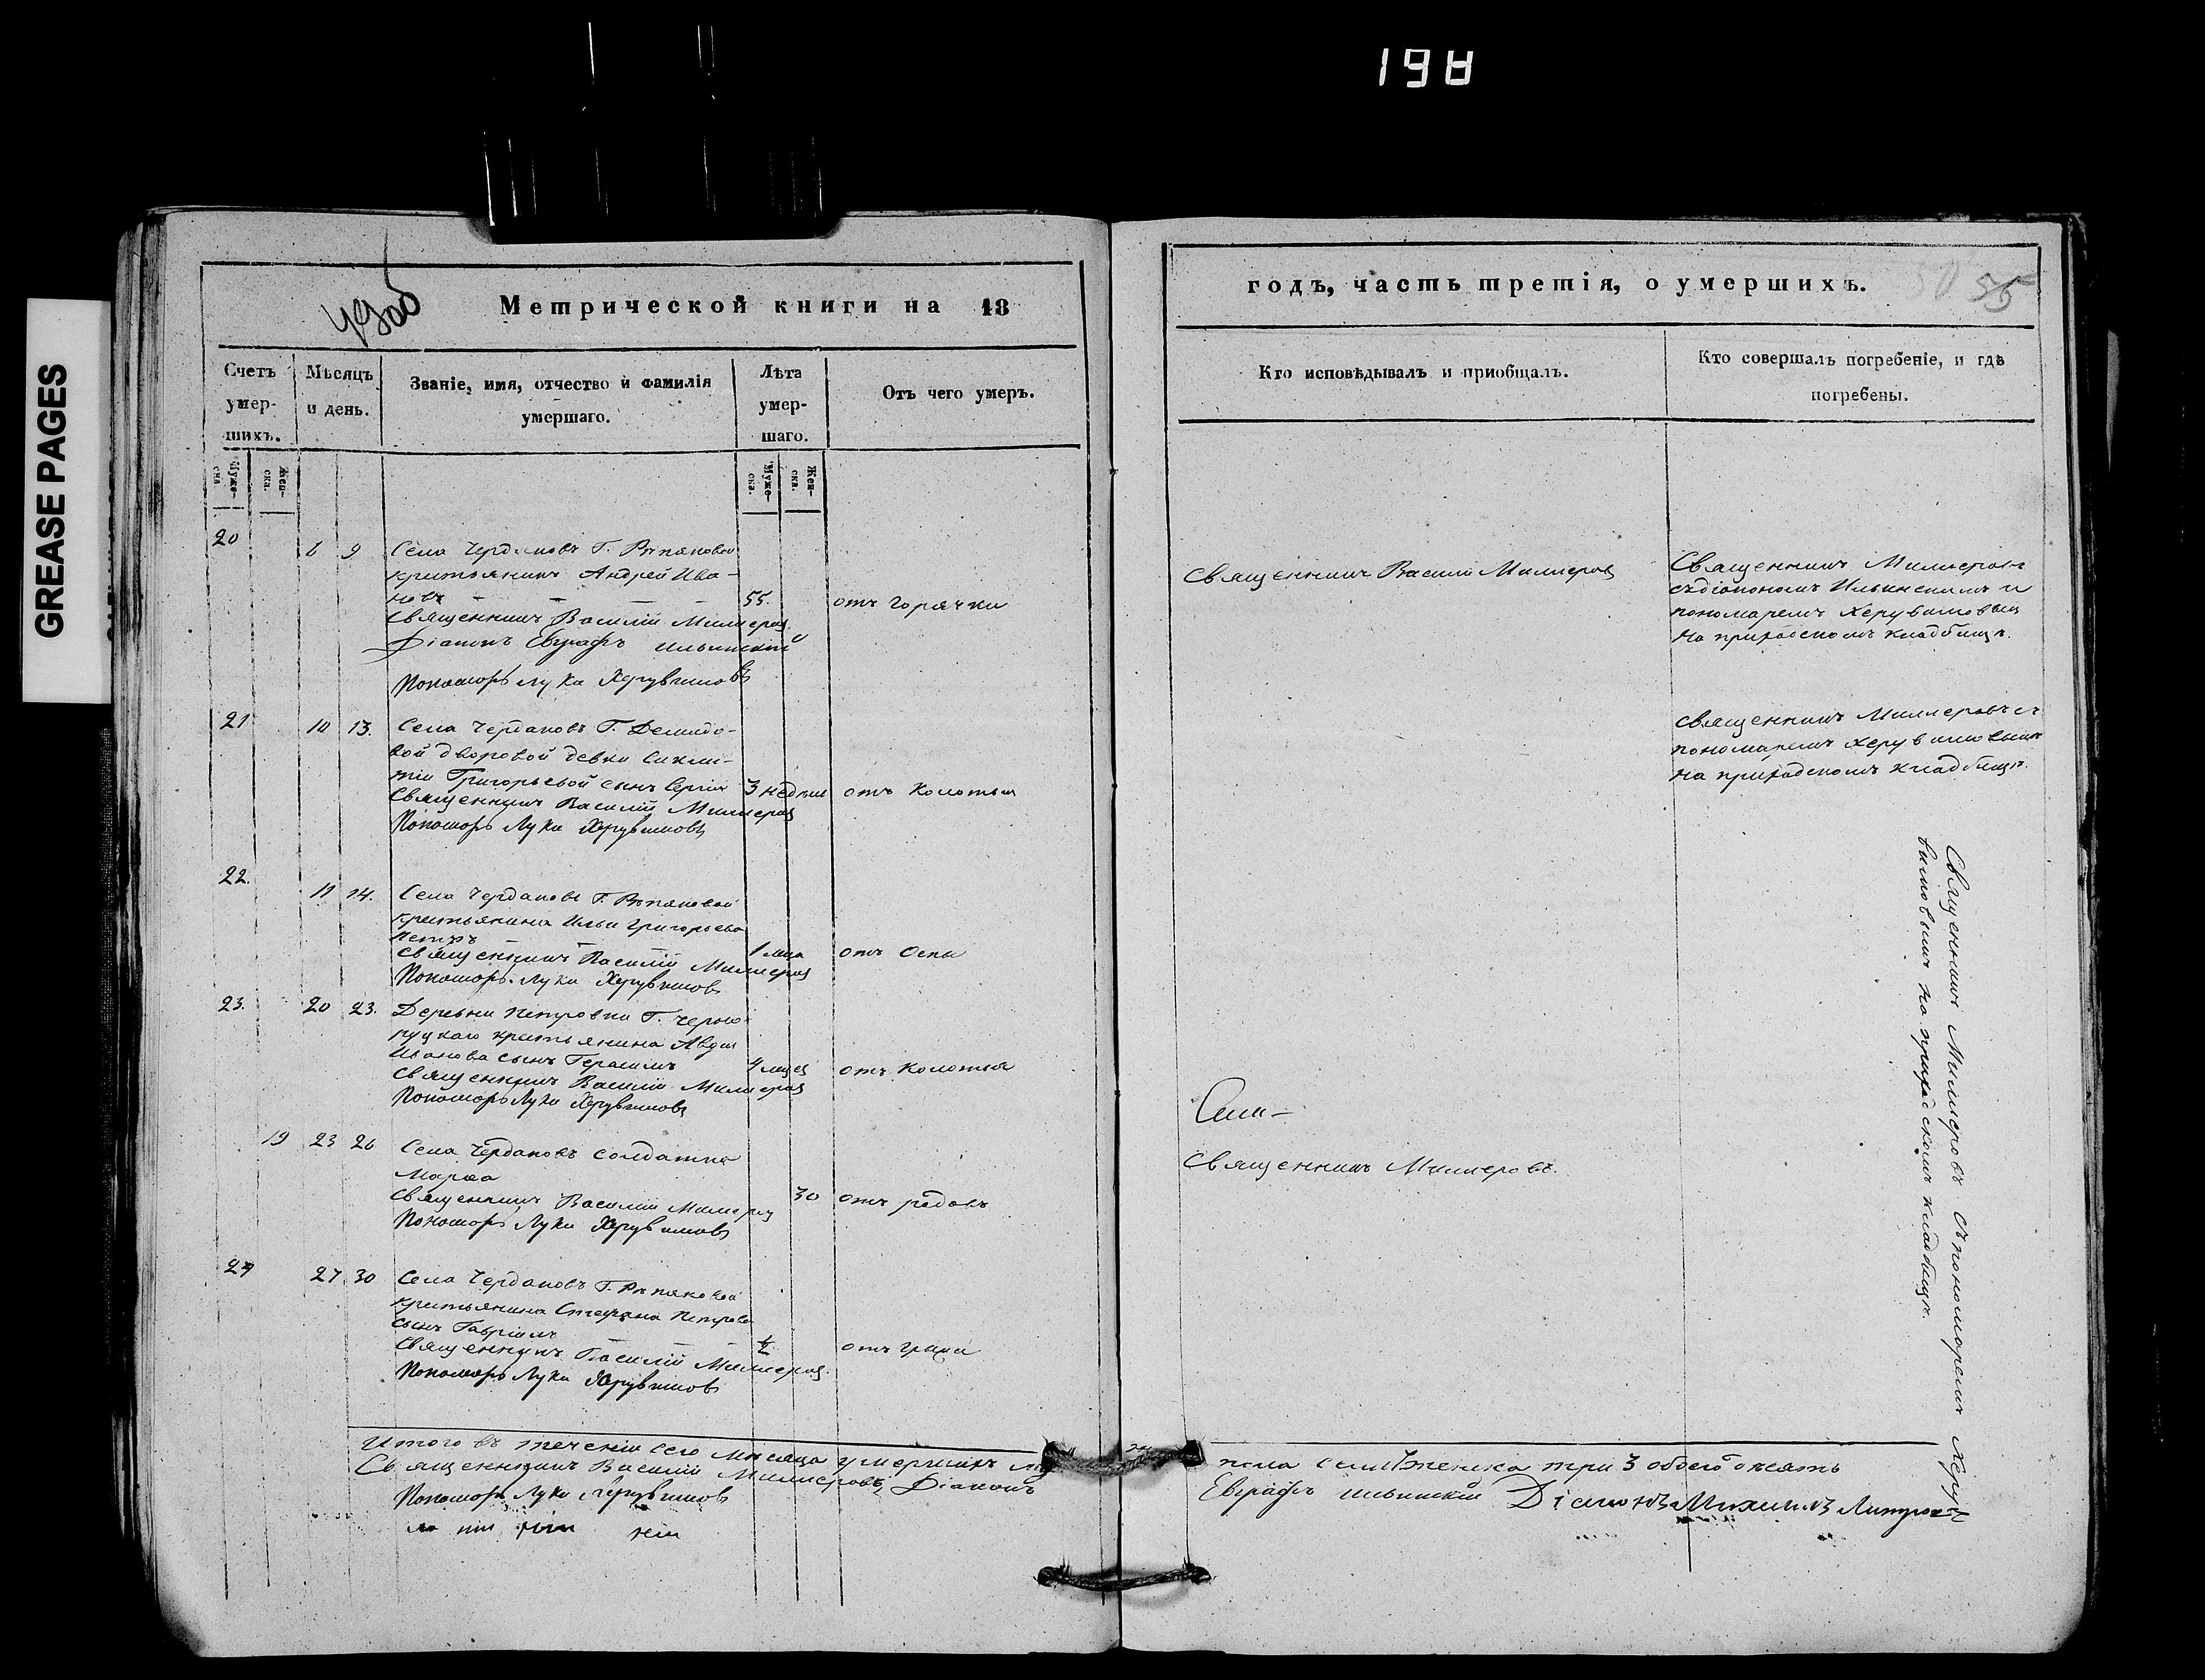 198
GREASE PAGES
Метрической книги на 18
Счетъ умер-шихъ.
Мѣсяцъ и день.
Званіе, имя, отчество и фамилія умершаго.
Лѣта умер-шаго.
Отъ чего умеръ.
Муже-ска
Жен-ска.
Муже-ска.
Жен-ска.
20 6 9 Села Чердаковъ Г. Рѣпяковой
крестьянинъ Андрей Ива-
новъ 55. отъ горячки
Священникъ Василій Миллеровъ
Діаконъ Евграфъ Ильинскій
Пономорь Лука Херувимовъ
21 10 13. Села Чердаковъ Г. Демидо-
вой дворовой девки Сикли-
тіи Григорьевой сынъ Сергій 3 недели отъ колотья
Священникъ Василій Миллеровъ
Пономорь Лука Херувимовъ
22. 11 14. Села Чердаковъ Г. Рѣпяковой
крестьянина Ильи Григорьева
Петръ 1 мца отъ оспы
Священникъ Василій Миллеровъ
Пономорь Лука Херувимовъ
23. 20 23. Деревни Петровки Г. Черно-
руцкаго крестьянина Авдея
Иванова сынъ Герасимъ 4 мцев отъ колотья
Священникъ Василій Миллеровъ
Пономорь Лука Херувимовъ
19 23 26 Села Чердаковъ солдатка
Марѳа 30 отъ родовъ
Священникъ Василій Миллеровъ
Пономорь Лука Херувимовъ
24 27 30 Села Чердаковъ Г. Рѣпяковой
крестьянина Стефана Петрова
сынъ Гавріилъ отъ грыжи
Священникъ Василій Миллеровъ
Пономорь Лука Херувимовъ
Итого въ теченіи сего мѣсяца умершихъ
Священникъ Василій Миллеровъ Діаконъ
Пономорь Лука Херувимовъ
годъ, часть третія, о умершихъ.
55
Кто исповѣдывалъ и приобщалъ.
Кто совершалъ погребеніе, и гдѣ погребены.
Священникъ Василій Миллеровъ
Священникъ Миллеровъ
съ діакономъ Ильинскимъ и
пономаремъ Херувимовымъ
на приходскомъ кладбищѣ.
Священникъ Миллеровъ съ
пономаремъ Херувимовымъ
на приходскомъ кладбищѣ.
Священникъ Миллеровъ съ пономоремъ Херу-
вимовымъ на приходскомъ кладбищѣ.
Священникъ Миллеровъ.
пола семь женска три 3 обоего десять
Евграфъ Ильинскій Діаконъ Михаилъ